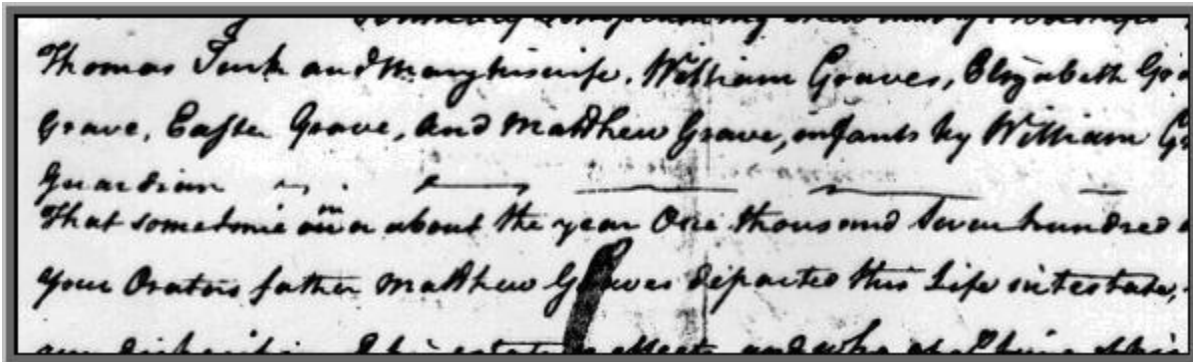 humbly complaining shew
Thomas Turk and Mary his wife, William Graves, Elizabeth
Grave, Easter Grave, and Matthew Grave, infants by William
Guardian
That sometime in or about the year One thousand Seven hundred
Your Orators father Matthew Graves departed this Life intestate,
estate effects and who at